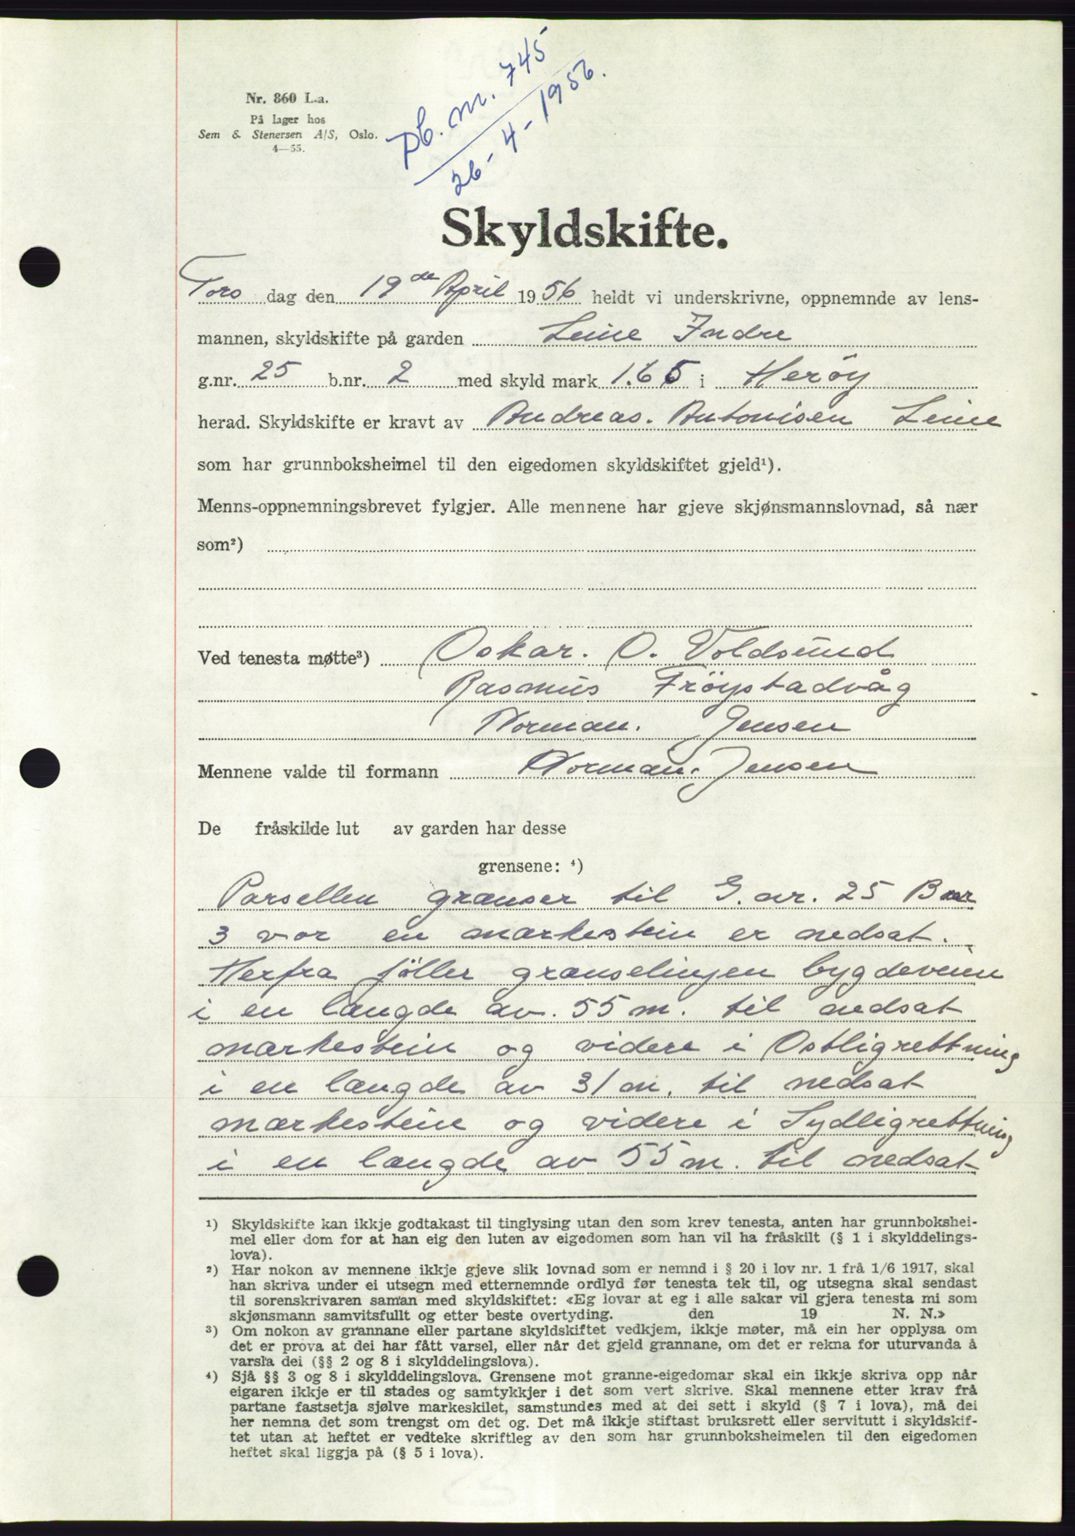 Nr. 860 L.a.
På lager hos
Sem & Stenersen A/S, Oslo.
4—55.
Db. nr. 745
26-4-1956.
Skyldskifte.
Tors dag den 19de April 1956 heldt vi underskrivne, oppnemnde av lens-
mannen, skyldskifte på garden Leine Indre
g.nr. 25 b.nr. 2 med skyld mark 1.65 i Herøy
herad. Skyldskifte er kravt av Andreas. Antonisen Leine
som har grunnboksheimel til den eigedomen skyldskiftet gjeld¹).
Menns-oppnemningsbrevet fylgjer. Alle mennene har gjeve skjønsmannslovnad, så nær
som²)
Ved tenesta møtte³) Oskar. O. Voldsund
Rasmus Frøystadvåg
Norman. Jensen
Mennene valde til formann Norman. Jensen
De fråskilde lut av garden har desse
grensene: ⁴)
Parsellen grænser til G.nr. 25 Bnr
3 vor en markestein er nedsat.
Herfra føller grænselinjen bygdeveien
i en længde av. 55 m. til nedsat
markestein og videre i Østligrettning
i en længde av 31 m. til nedsat
markestein og videre i Sydligrettning
i en længde av 55 m. til nedsat
¹) Skyldskifte kan ikkje godtakast til tinglysing utan den som krev tenesta, anten har grunnbokshei-
mel eller dom for at han eig den luten av eigedomen som han vil ha fråskilt (§ 1 i skylddelings-
lova).
²) Har nokon av mennene ikkje gjeve slik lovnad som er nemnd i § 20 i lov nr. 1 frå 1/6 1917, skal
han skriva under ei utsegn med etternemnde ordlyd før tenesta tek til, og utsegna skal sendast
til sorenskrivaren saman med skyldskiftet: «Eg lovar at eg i alle sakar vil gjera tenesta mi som
skjønsmann samvitsfullt og etter beste overtyding. den 19 N. N.»
³) Om nokon av grannane eller partane skyldskiftet vedkjem, ikkje møter, må ein her opplysa om
det er prova at dei har fått varsel, eller når det gjeld grannane, om det er rekna for uturvanda å
varsla dei (§§ 2 og 8 i skylddelingslova).
⁴) Sjå §§ 3 og 8 i skylddelingslova. Grensene mot granne-eigedomar skal ein ikkje skriva opp når
eigaren ikkje er til stades og samtykkjer i det som vert skrive. Skal mennene etter krav frå
partane fastsetja sjølve markeskilet, samstundes med at dei sett i skyld (§ 7 i lova), må dei
her nemna det som trengst om det og. Det må ikkje stiftast bruksrett eller servitutt i skyldskif-
tet utan at heftet er vedteke skriftleg av den som har grunnboksheimelen til den eigedomen
heftet skal liggja på (§ 5 i lova).